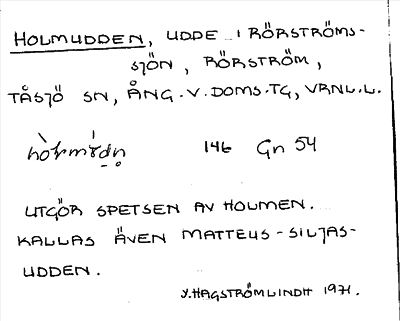 HOLMUDDEN, UDDE I RÖRSTRÖMS-
SJÖN, RÖRSTRÖM,
TÅSJÖ SN, ÅNG.V.DOMS.TG, VRNL.L.
146 Gn 54
UTGÖR SPETSEN AV HOLMEN.
KALLAS ÄVEN MATTEUS-SILJAS-
UDDEN.
Y.HAGSTRÖMLINDH 1971.